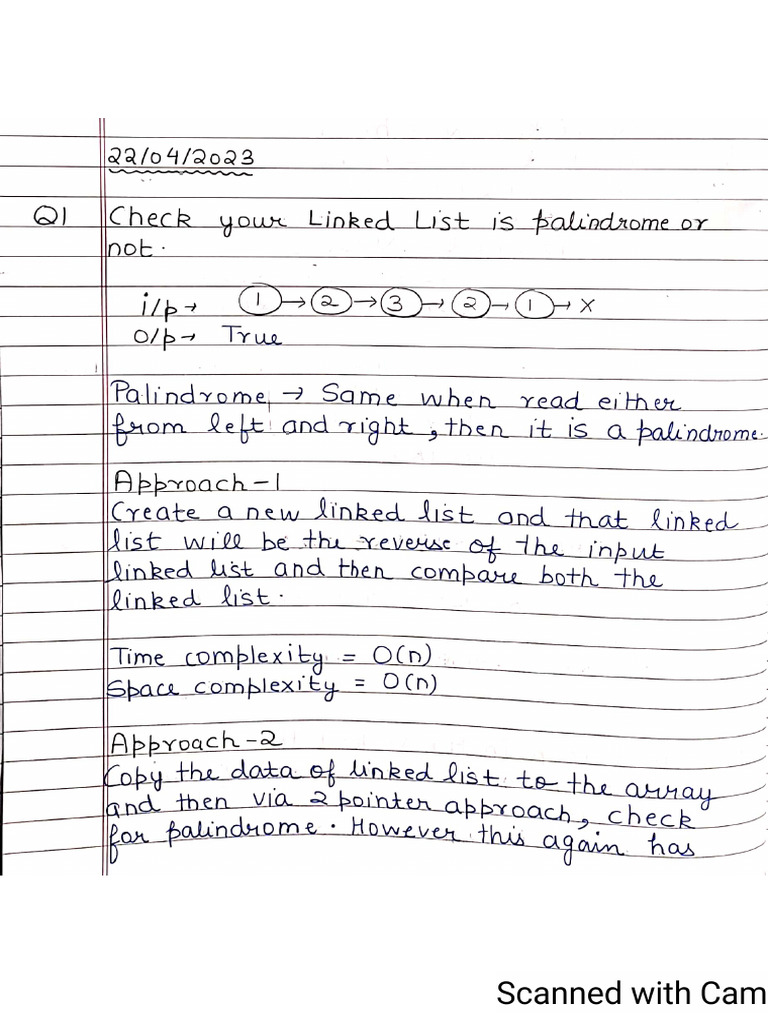 22/04/2023
Q1 Check your Linked List is palindrome or
not.
i/p → 1 → 2 → 3 → 2 → 1 → X
O/p → True
Palindrome → Same when read either
from left and right, then it is a palindrome.
Approach-1
Create a new linked list and that linked
list will be the reverse of the input
linked list and then compare both the
linked list.
Time complexity = O(n)
Space complexity = O(n)
Approach-2
Copy the data of linked list to the array
and then via 2 pointer approach, check
for palindrome. However this again has
Scanned with Cam